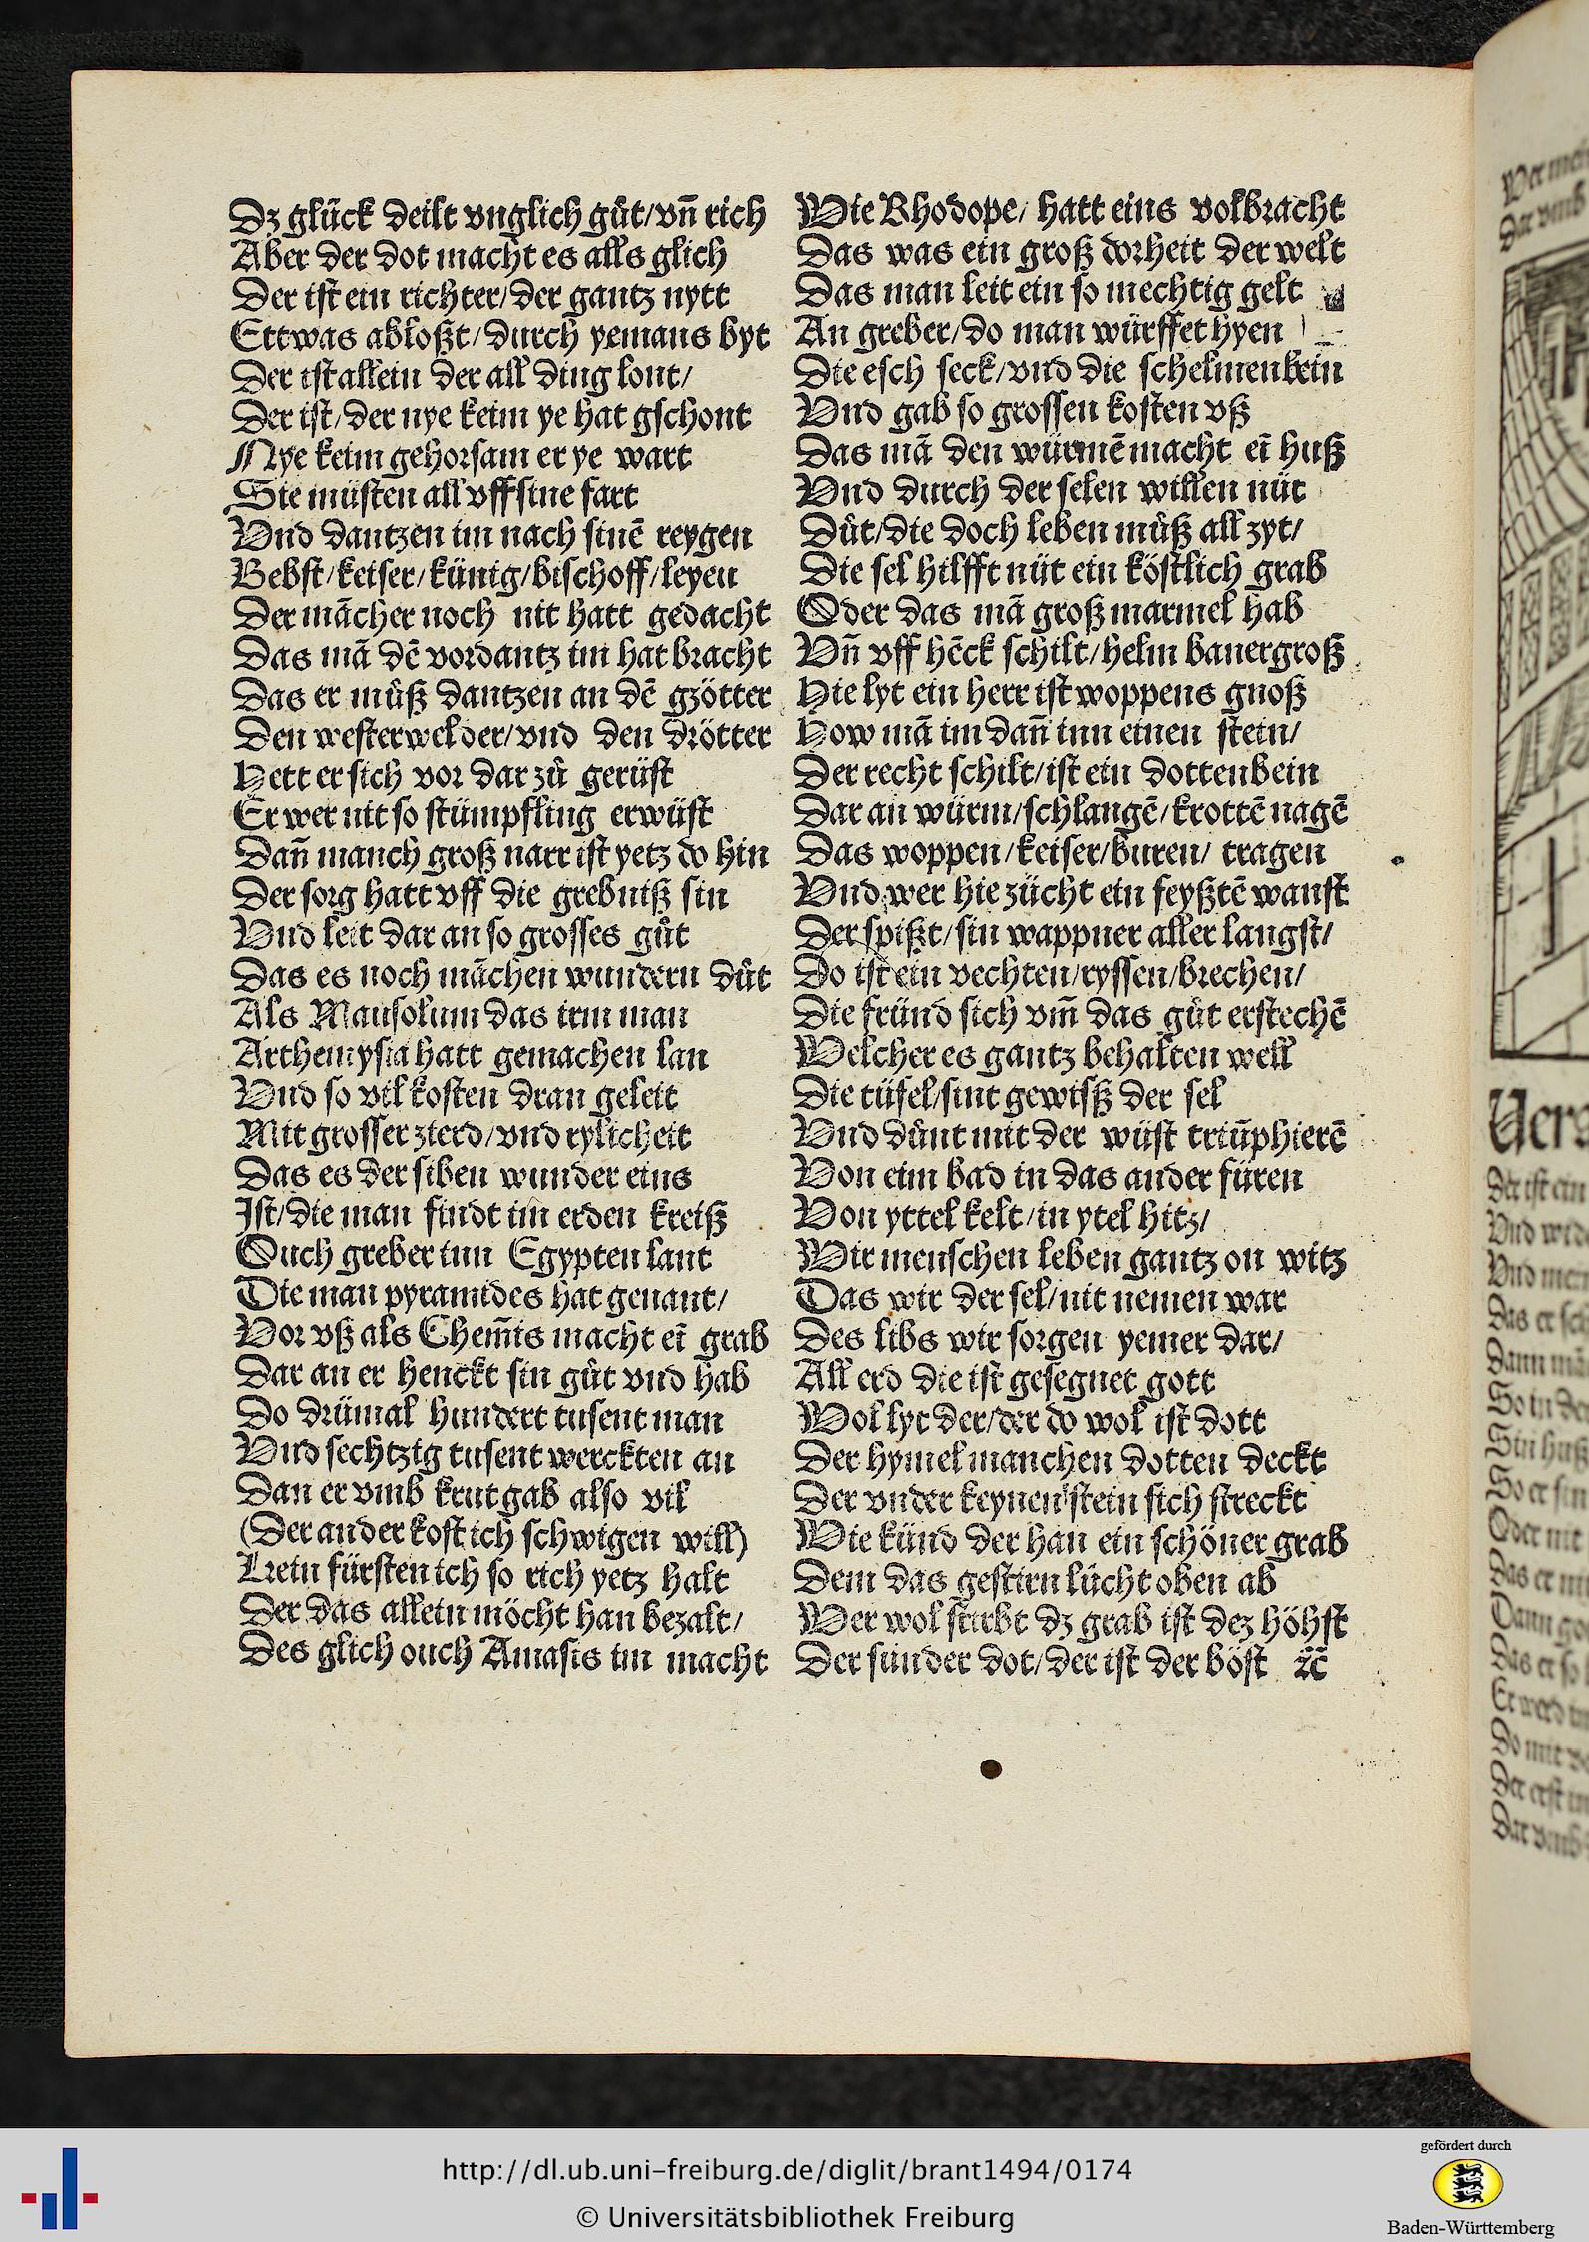 Dz glück deilt vnglich gůt/vn̄ rich
Aber der dot macht es alls glich
Der ist ein richter/der gantz nytt
Ettwas abloßt/durch yemans byt
Der ist allein der all ding lont/
Der ist/der nye keim ye hat gschont
Nye keim gehorsam er ye wart
Sie můsten all vff sine fart
Vnd dantzen im nach sinē reygen
Bebst/keiser/künig/bischoff/leyen
Der mācher noch nit hatt gedacht
Das mā dē vordantz im hat bracht
Das er můß dantzen an dē gzötter
Den westerwelder/vnd den drötter
Hett er sich vor dar zů gerüst
Er wer nit so stümpfling erwüst
Dan̄ manch groß narr ist yetz do hin
Der sorg hatt vff die grebniß sin
Vnd leit dar an so grosses gůt
Das es noch māchen wundern důt
Als Mausolum das irm man
Arthemysia hatt gemachen lan
Vnd so vil kosten dran geleit
Mit grosser zierd/vnd rylicheit
Das es der siben wunder eins
Ist/die man findt im erden kreiß
Ouch greber inn Egypten lant
Die man pyramides hat genant/
Vor vß als Chem̄is macht eī grab
Dar an er henckt sin gůt vnd hab
Do drümal hundert tusent man
Vnd sechtzig tusent werckten an
Dan er vmb krut gab also vil
(Der ander kost ich schwigen will)
Kein fürsten ich so rich yetz halt
Der das allein möcht han bezalt/
Des glich ouch Amasis im macht
Wie Rhodope/ hatt eins volbracht
Das was ein groß dorheit der welt
Das man leit ein so mechtig gelt
An greber/do man würffet hyen
Die esch seck/vnd die schelmenbein
Vnd gab so grossen kosten vß
Das mā den würmē macht eī huß
Vnd durch der selen willen nüt
Důt/die doch leben můß all zyt/
Die sel hilfft nüt ein köstlich grab
Oder das mā groß marmel hab
Vn̄ vff hēck schilt/helm banergroß
Hie lyt ein herr ist woppens gnoß
How mā im dan̄ inn einen stein/
Der recht schilt/ist ein dottenbein
Dar an würm/schlangē/krottē nagē
Das woppen/keiser/buren/ tragen
Vnd wer hie zücht ein feyßtē wanst
Der spißt/sin wappner aller langst/
Do ist ein vechten/ryssen/brechen/
Die fründ sich vm̄ das gůt erstechē
Welcher es gantz behalten well
Die tüfel/sint gewisß der sel
Vnd důnt mit der wüst triūphierē
Von eim bad in das ander füren
Von yttel kelt/in ytel hitz/
Wir menschen leben gantz on witz
Das wir der sel/nit nemen war
Des libs wir sorgen yemer dar/
All erd die ist gesegnet gott
Wol lyt der/der do wol ist dott
Der hymel manchen dotten deckt
Der vnder keynen stein sich streckt
Wie künd der han ein schöner grab
Dem das gestirn lücht oben ab
Wer wol stirbt dz grab ist dez höhst
Der sünder dot/der ist der böst ⁊c̄
http://dl.ub.uni-freiburg.de/diglit/brant1494/0174
© Universitätsbibliothek Freiburg
gefördert durch
Baden-Württemberg